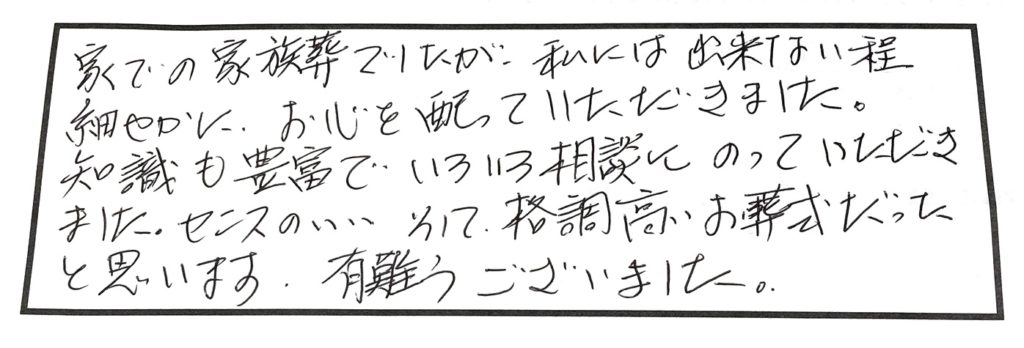 家での家族葬でしたが、私には出来ない程
細やかに、お心を配っていただきました。
知識も豊富でいろいろ相談にのっていただき
ました。センスのいい そして、格調高いお葬式だった
と思います。有難うございました。